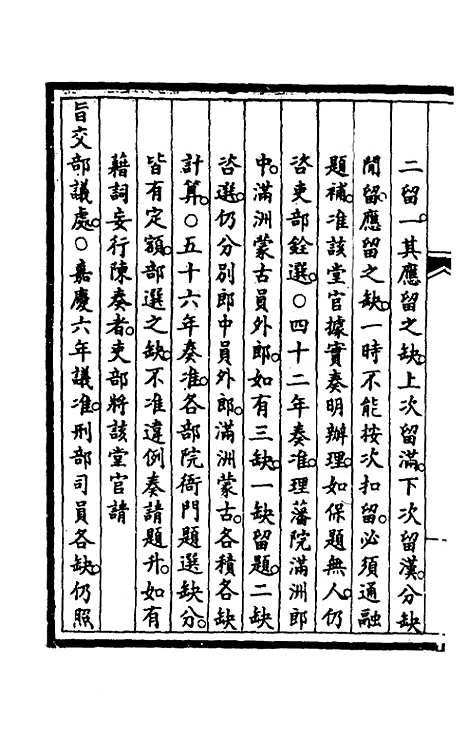 二留一。其應留之缺。上次留滿。下次留漢。分缺
閒留。應留之缺。一時不能按次扣留。必須通融
題補。准該堂官據實奏明辦理。如保題無人。仍
咨吏部銓選。○四十二年奏准。理藩院滿洲郎
中。滿洲蒙古員外郎。如有三缺。一缺留題。二缺
咨選。仍分別郎中員外郎。滿洲蒙古。各積各缺
計算。○五十六年奏准。各部院衙門題選缺分。
皆有定額。部選之缺。不准違例奏請題升。如有
藉詞妄行陳奏者。吏部將該堂官請
旨交部議處。○嘉慶六年議准。刑部司員各缺。仍照